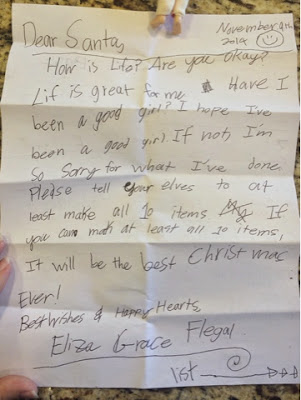 November 4th
2014
Dear Santa,
How is Life? Are you okay?
Lif is great for me. Have I
been a good girl? I hope I've
been a good girl. If not, I'm
so sorry for what I've done.
Please tell your elves to at
least make all 10 items If
you can mak at least all 10 items,
It will be the best Christmac
Ever!
Best Wishes & Happy Hearts,
Eliza Grace Flegal
list